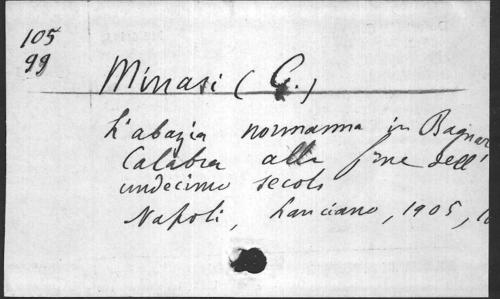 105
99
Minasi (G.)
L'abazia normanna in Bagnar
Calabra alla fine dell'
undecimo secolo
Napoli, Lanciano, 1905, 1